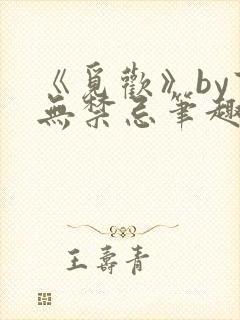 《覓歡》by
無禁忌筆趣
王壽青